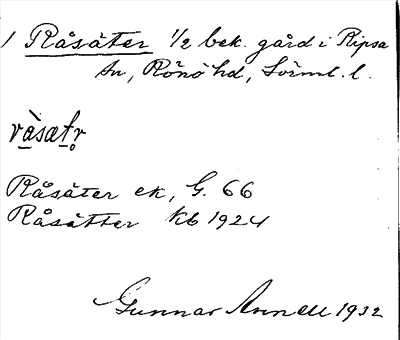 1 Råsäter 1/2 bek. gård i Ripsa
sn, Rönö hd, Sörml. l.
vàsætr̥
Råsäter ek, G. 66
Råsätter kb 1924
Gunnar Annell 1932